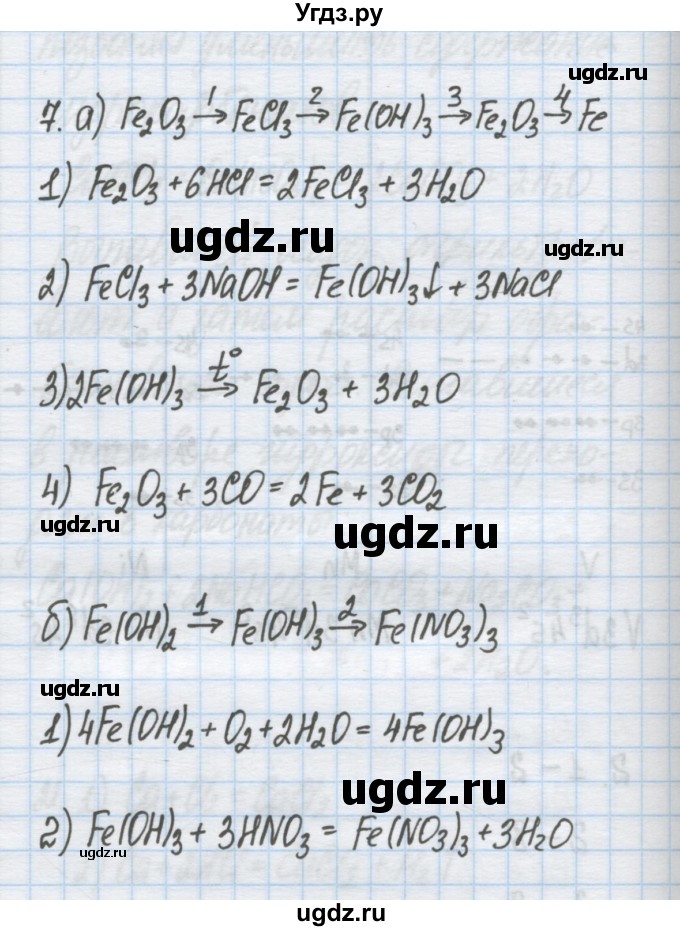 Угдз.ру
7. а) Fe₂O₃ →¹ FeCl₃ →² Fe(OH)₃ →³ Fe₂O₃ →⁴ Fe
ugdz.ru
1) Fe₂O₃ + 6HCl = 2FeCl₃ + 3H₂O
ugdz.ru
ugdz.ru
2) FeCl₃ + 3NaOH = Fe(OH)₃↓ + 3NaCl
3) 2Fe(OH)₃ →t° Fe₂O₃ + 3H₂O
4) Fe₂O₃ + 3CO = 2Fe + 3CO₂
ugdz.ru
ugdz.ru
б) Fe(OH)₂ →¹ Fe(OH)₃ →² Fe(NO₃)₃
ugdz.ru
1) 4Fe(OH)₂ + O₂ + 2H₂O = 4Fe(OH)₃
ugdz.ru
2) Fe(OH)₃ + 3HNO₃ = Fe(NO₃)₃ + 3H₂O
ugdz.ru
ugdz.ru